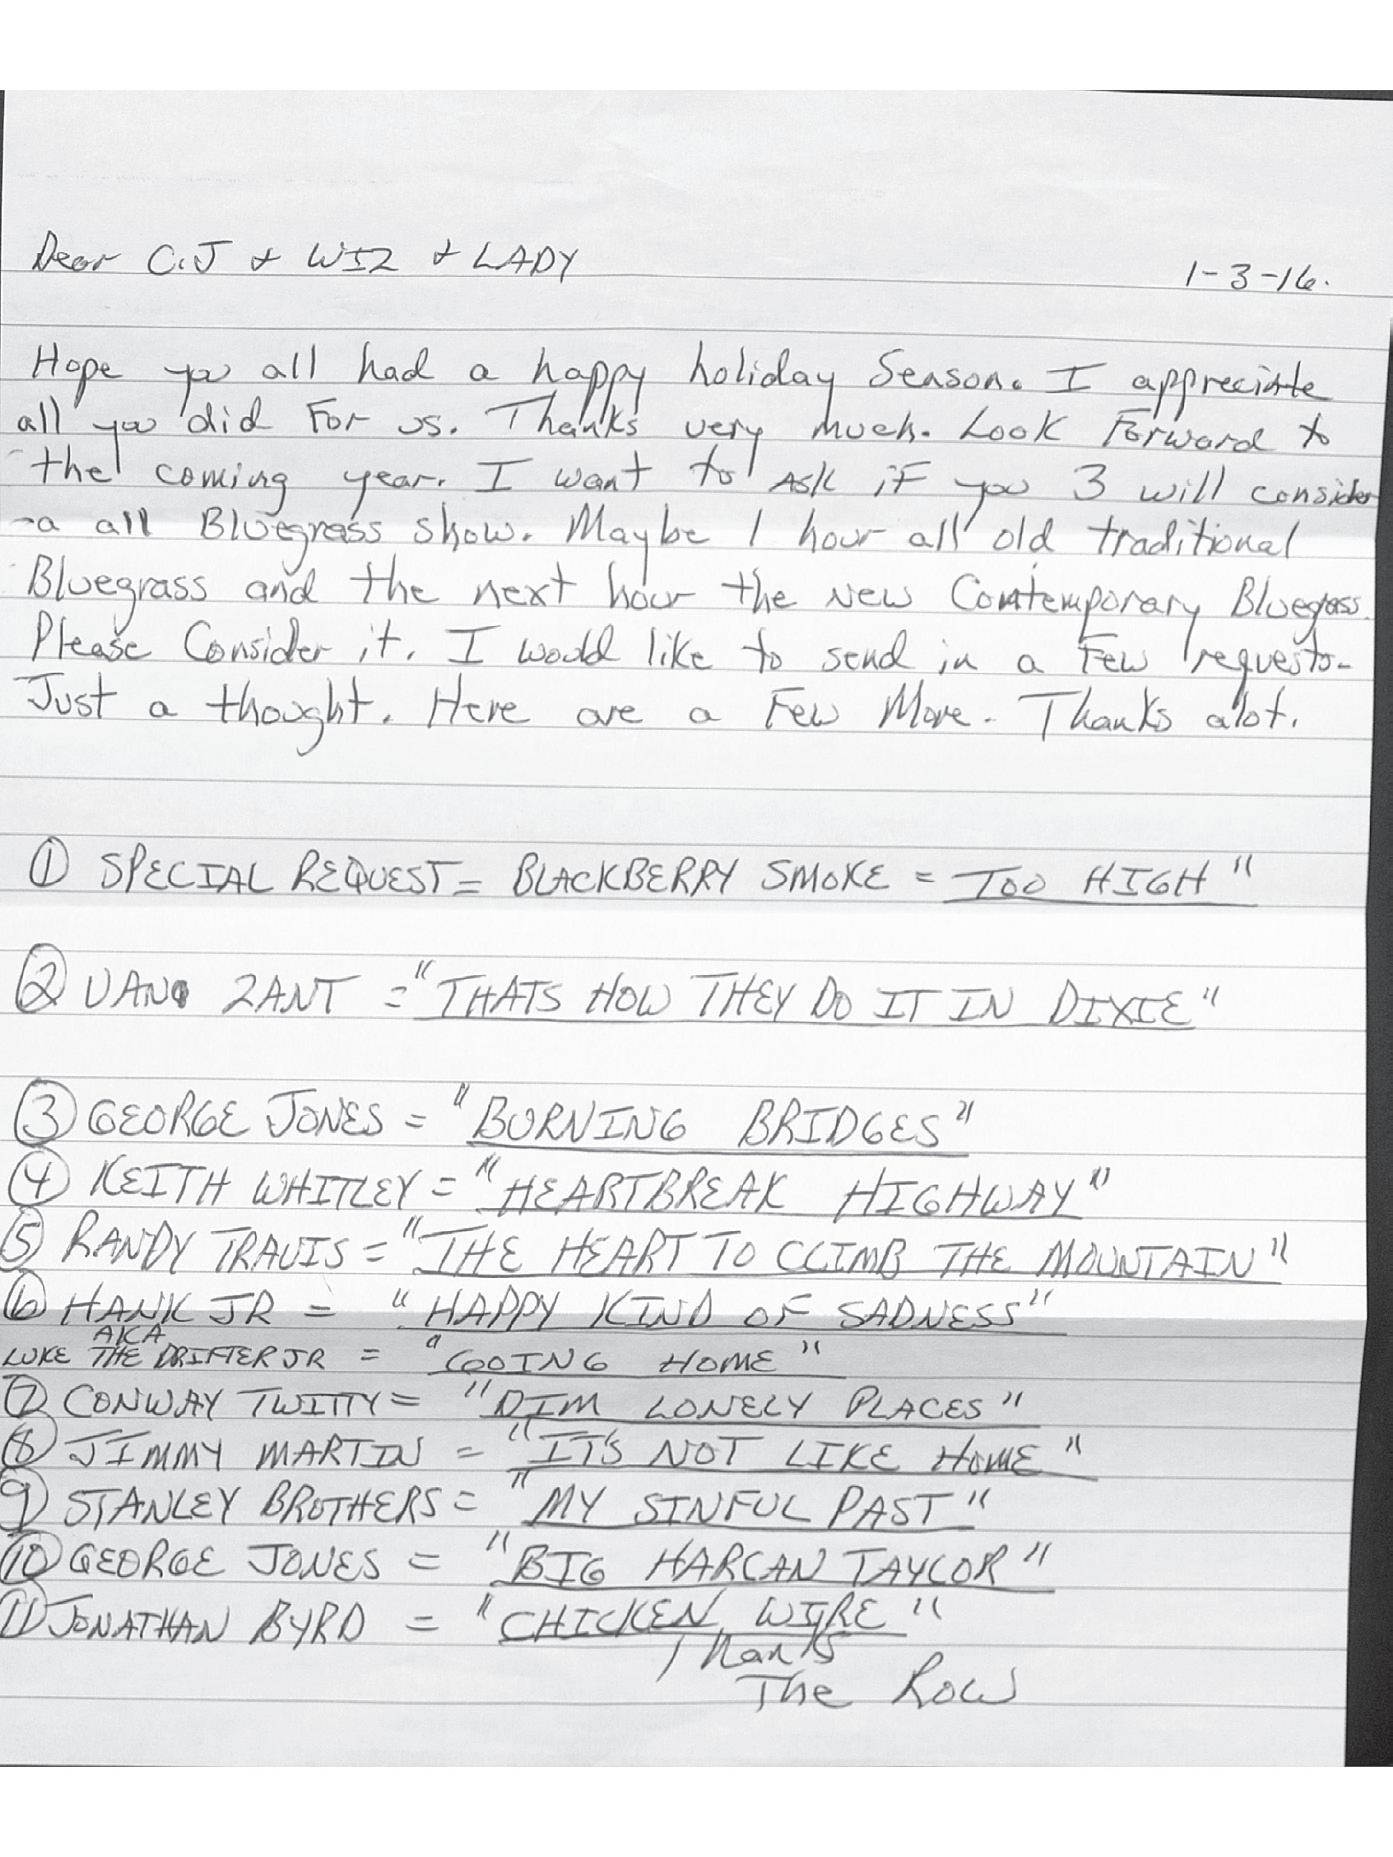 Dear C.J & WIZ & LADY
1-3-16.
Hope you all had a happy holiday Season. I appreciate
all you did For us. Thanks very much. Look Forward to
the coming year. I want to ask iF you 3 will consider
a all Bluegrass show. Maybe 1 hour all old traditional
Bluegrass and the next hour the New Contemporary Bluegrass.
Please Consider it. I would like to send in a Few requests-
Just a thought. Here are a Few More. Thanks alot.
① SPECIAL REQUEST = BLACKBERRY SMOKE = TOO HIGH"
② VAN ZANT = "THATS HOW THEY DO IT IN DIXIE"
③ GEORGE JONES = "BURNING BRIDGES"
④ KEITH WHITLEY = "HEARTBREAK HIGHWAY"
⑤ RANDY TRAVIS = "THE HEART TO CLIMB THE MOUNTAIN"
⑥ HANK JR = "HAPPY KIND OF SADNESS"
AKA
LUKE THE DRIFTER JR = "GOING HOME"
⑦ CONWAY TWITTY = "DIM LONELY PLACES"
⑧ JIMMY MARTIN = "IT'S NOT LIKE HOME"
⑨ STANLEY BROTHERS = "MY SINFUL PAST"
⑩ GEORGE JONES = "BIG HARLAN TAYLOR"
⑪ JONATHAN BYRD = "CHICKEN WIRE"
Thanks
The Row